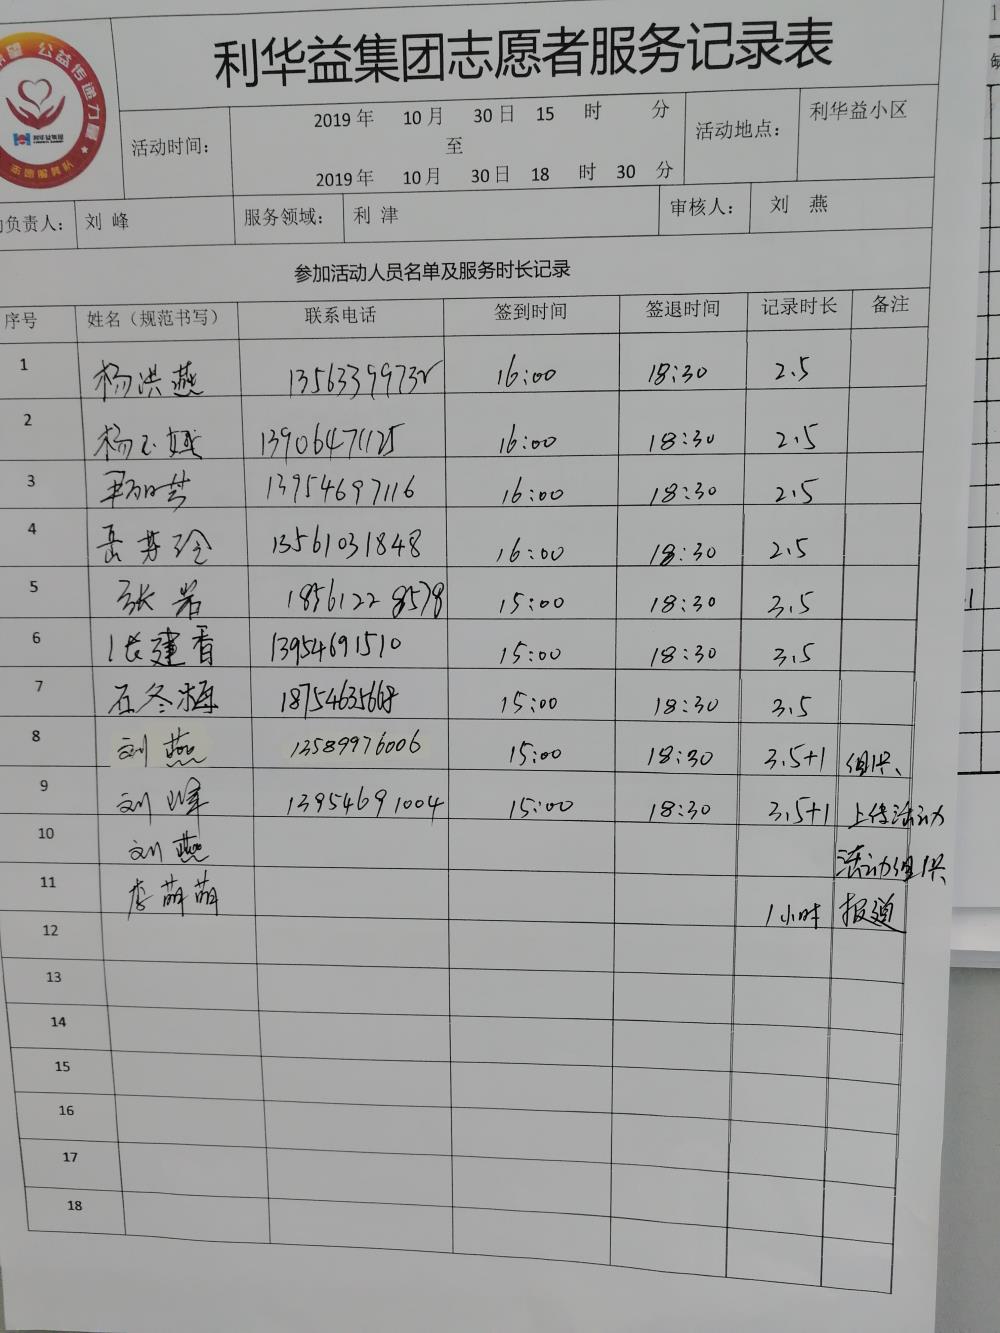 利华益集团志愿者服务记录表
公益传递力量
利华益集团
志愿服务队
活动时间: 2019年 10月 30日 15 时 分 至 2019年 10月 30日 18 时 30 分 活动地点: 利华益小区
负责人: 刘 峰 服务领域: 利 津 审核人: 刘 燕
参加活动人员名单及服务时长记录
序号 姓名（规范书写） 联系电话 签到时间 签退时间 记录时长 备注
1 杨洪燕 16:00 18:30 2.5
2 杨玉娥 13906471125 16:00 18:30 2.5
3 13954697116 16:00 18:30 2.5
4 岳芳玲 13561031848 16:00 18:30 2.5
5 张岩 18561228578 15:00 18:30 3.5
6 张建香 13954691510 15:00 18:30 3.5
7 石冬梅 18754635668 15:00 18:30 3.5
8 刘燕 13589976006 15:00 18:30 3.5+1 组织、
9 刘峰 13954691004 15:00 18:30 3.5+1 上传活动
10 刘燕 活动组织
11 李萌萌 1小时 报道
12
13
14
15
16
17
18